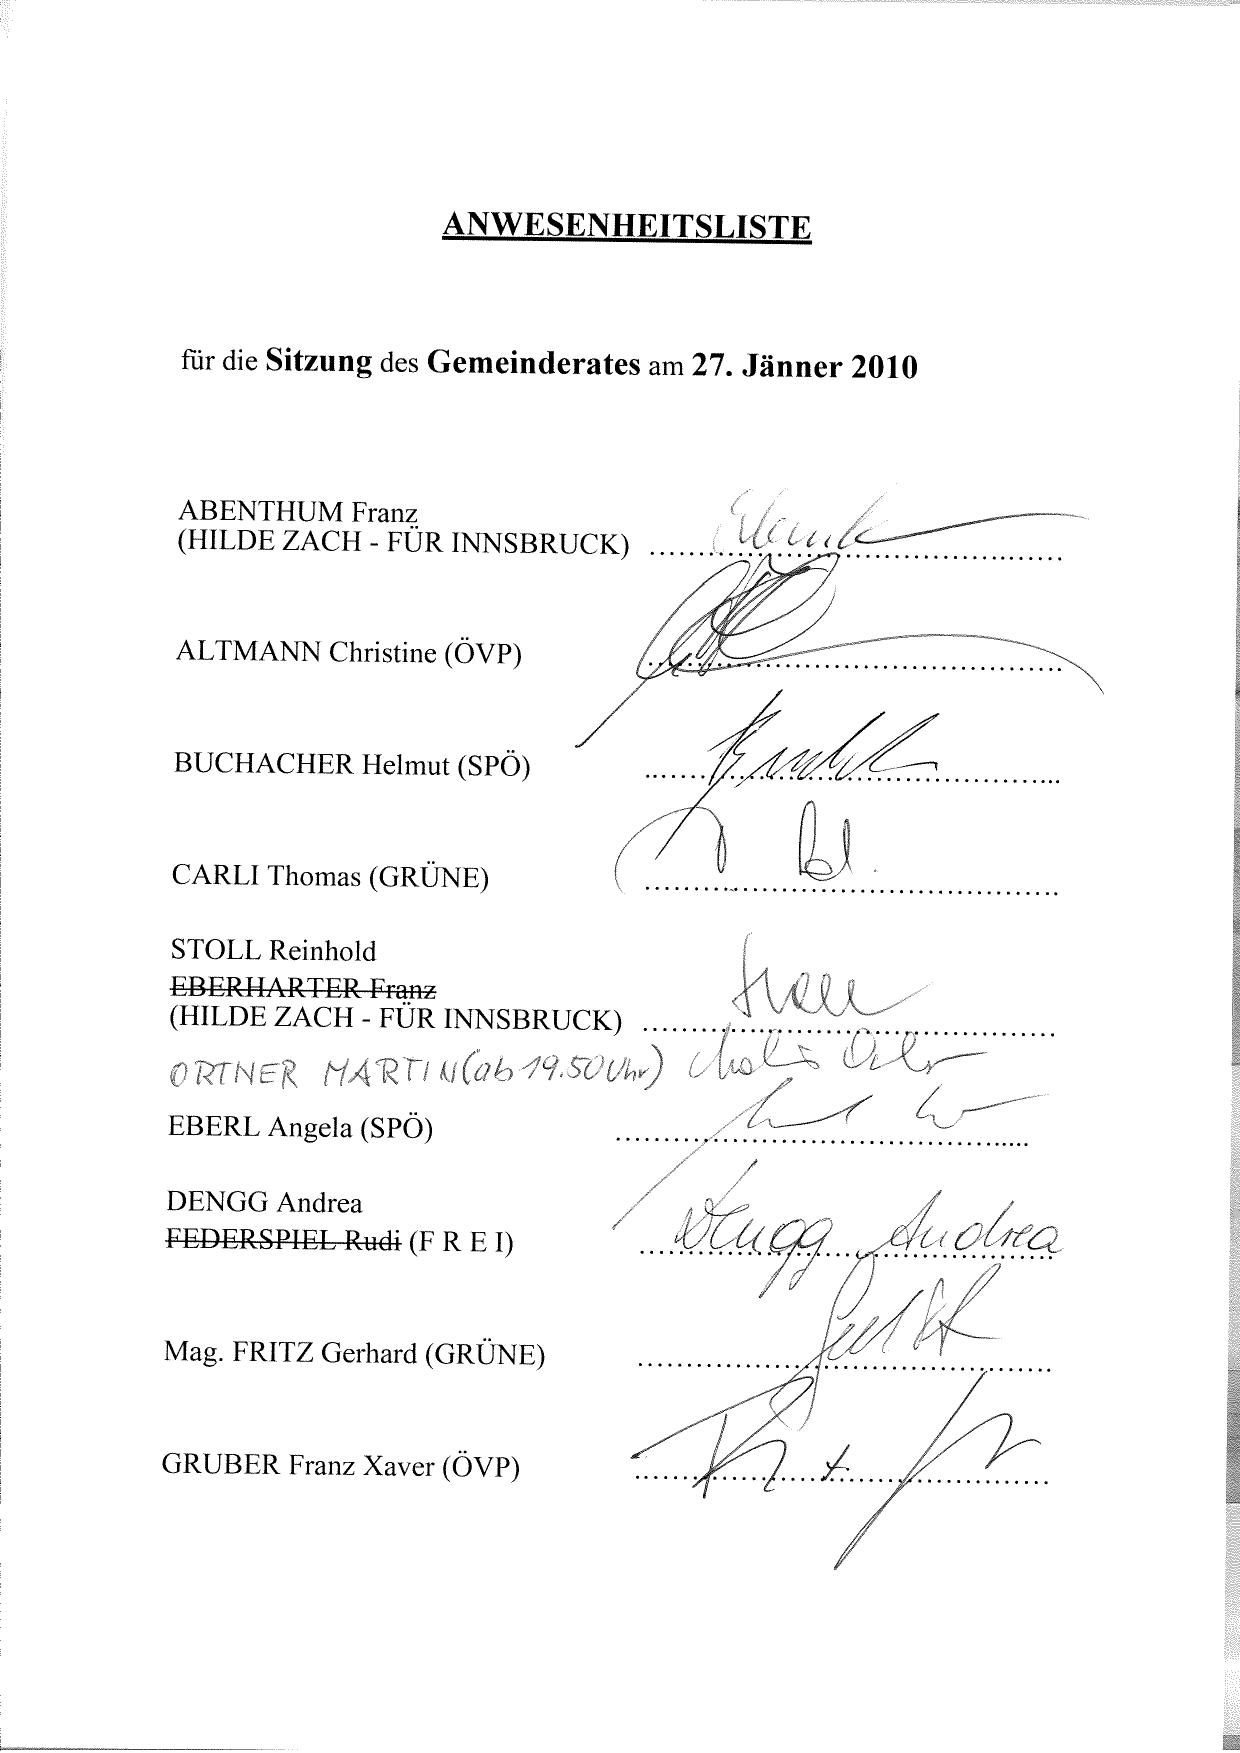 ANWESENHEITSLISTE
für die Sitzung des Gemeinderates am 27. Jänner 2010
ABENTHUM Franz
(HILDE ZACH - FÜR INNSBRUCK)
ALTMANN Christine (ÖVP)
BUCHACHER Helmut (SPÖ)
CARLI Thomas (GRÜNE)
STOLL Reinhold
EBERHARTER Franz
(HILDE ZACH - FÜR INNSBRUCK)
ORTNER MARTIN (ab 19.50 Uhr)
EBERL Angela (SPÖ)
DENGG Andrea
FEDERSPIEL Rudi (F R E I) Dengg Andrea
Mag. FRITZ Gerhard (GRÜNE)
GRUBER Franz Xaver (ÖVP)